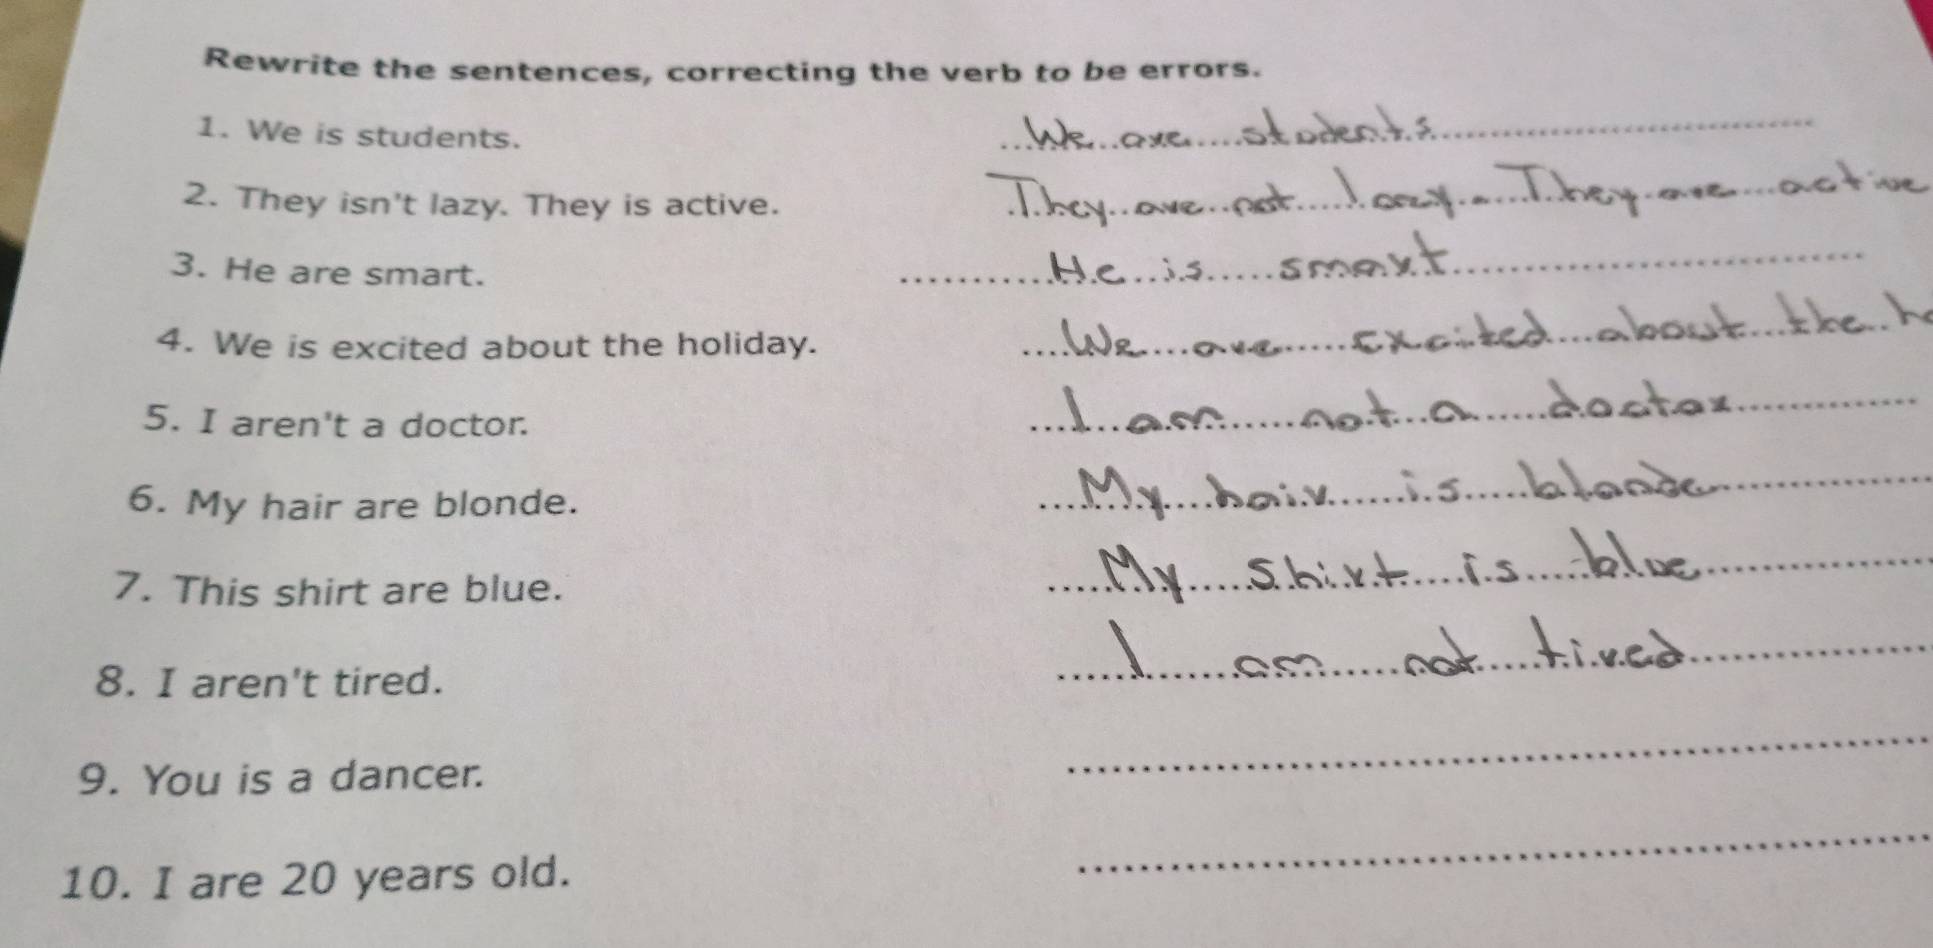 Rewrite the sentences, correcting the verb to be errors.
1. We is students. We are students.
2. They isn't lazy. They is active. They are not lazy. They are active
3. He are smart. He is smart
4. We is excited about the holiday. We are excited about the ho
5. I aren't a doctor. I am not a doctor
6. My hair are blonde. My hair is blonde
7. This shirt are blue. My shirt is blue
8. I aren't tired. I am not tired
9. You is a dancer.
10. I are 20 years old.